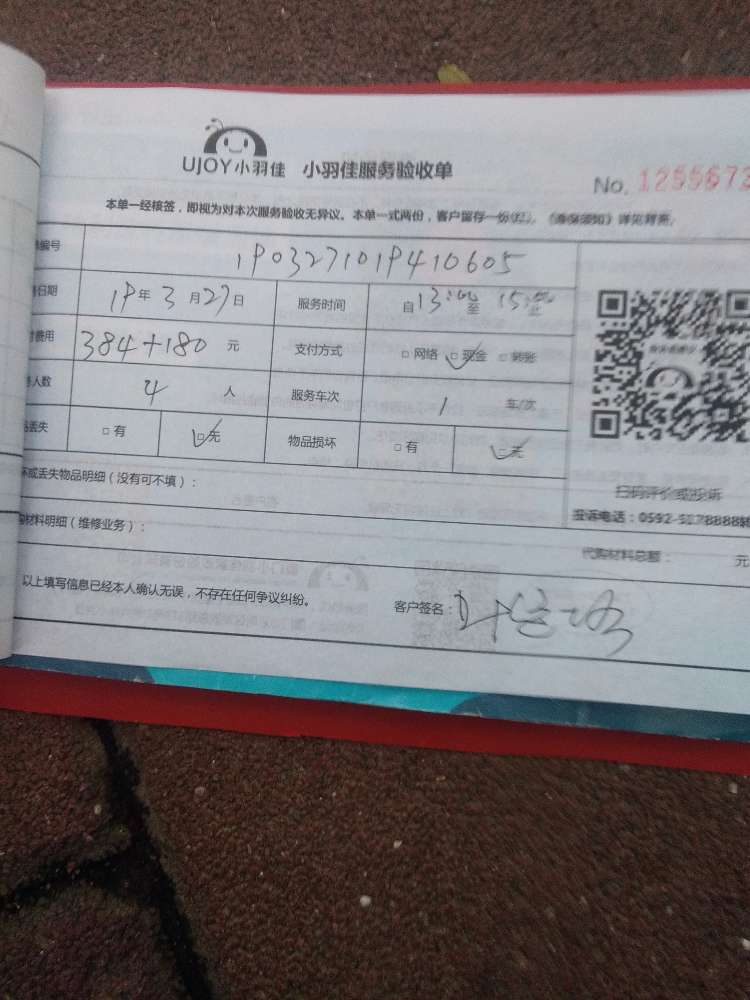 UJOY小羽佳 小羽佳服务验收单
No. 1255673
本单一经核签，即视为对本次服务验收无异议。本单一式两份，客户留存一份
详见背面。
编号 1903271019410605
日期 19年3月27日 服务时间 自13:00至15:00止
费用 384+180元 支付方式 □网络 ☑现金 □转账
人数 4人 服务车次 1车/次
丢失 □有 ☑无 物品损坏 □有 ☑无
或丢失物品明细（没有可不填）：
扫码评价或投诉
材料明细（维修业务）：
投诉电话：0592-5178888转
代购材料总额： 元
以上填写信息已经本人确认无误，不存在任何争议纠纷。 客户签名：